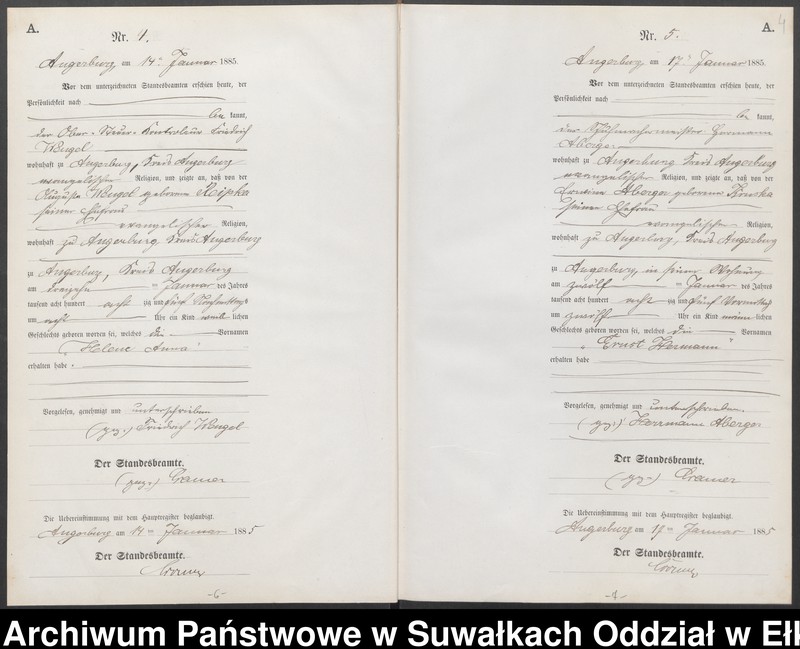 A.
Nr. 4.
Angerburg, am 14ten Januar 1885.
Vor dem unterzeichneten Standesbeamten erschien heute, der
Persönlichkeit nach
be kannt,
der Ober-Steuer-Kontroleur Friedrich
Wengel
wohnhaft zu Angerburg, Kreis Angerburg
evangelischer Religion, und zeigte an, daß von der
Auguste Wengel geborenen
seiner Ehefrau
evangelischer Religion,
wohnhaft zu Angerburg Kreis Angerburg
zu Angerburg, Kreis Angerburg
am dreizehn ten Januar des Jahres
tausend acht hundert acht zig und fünf Nachmittags
um acht Uhr ein Kind weib lichen
Geschlechts geboren worden sei, welches die Vornamen
„Helene Anna“
erhalten habe.
Vorgelesen, genehmigt und unterschrieben
(gez.) Friedrich Wengel
Der Standesbeamte.
(gez.) Cramer
Die Uebereinstimmung mit dem Hauptregister beglaubigt.
Angerburg am 14 ten Januar 1885
Der Standesbeamte.
Cramer
-6-
A.
4
Nr. 5.
Angerburg am 17ten Januar 1885.
Vor dem unterzeichneten Standesbeamten erschien heute, der
Persönlichkeit nach
be kannt,
der Schuhmachermeister Hermann
Aberger
wohnhaft zu Angerburg Kreis Angerburg
evangelischer Religion, und zeigte an, daß von der
Aberger geborenen
seiner Ehefrau
evangelischer Religion,
wohnhaft zu Angerburg, Kreis Angerburg
zu Angerburg, in seiner Wohnung
am zwölf ten Januar des Jahres
tausend acht hundert acht zig und fünf Vormittags
um zwölf Uhr ein Kind männ lichen
Geschlechts geboren worden sei, welches die Vornamen
„Ernst Hermann“
erhalten habe
Vorgelesen, genehmigt und unterschrieben.
(gez.) Herrmann Aberger
Der Standesbeamte.
(gez.) Cramer
Die Uebereinstimmung mit dem Hauptregister beglaubigt.
Angerburg am 17 ten Januar 1885
Der Standesbeamte.
Cramer
Archiwum Państwowe w Suwałkach Oddział w Ełk